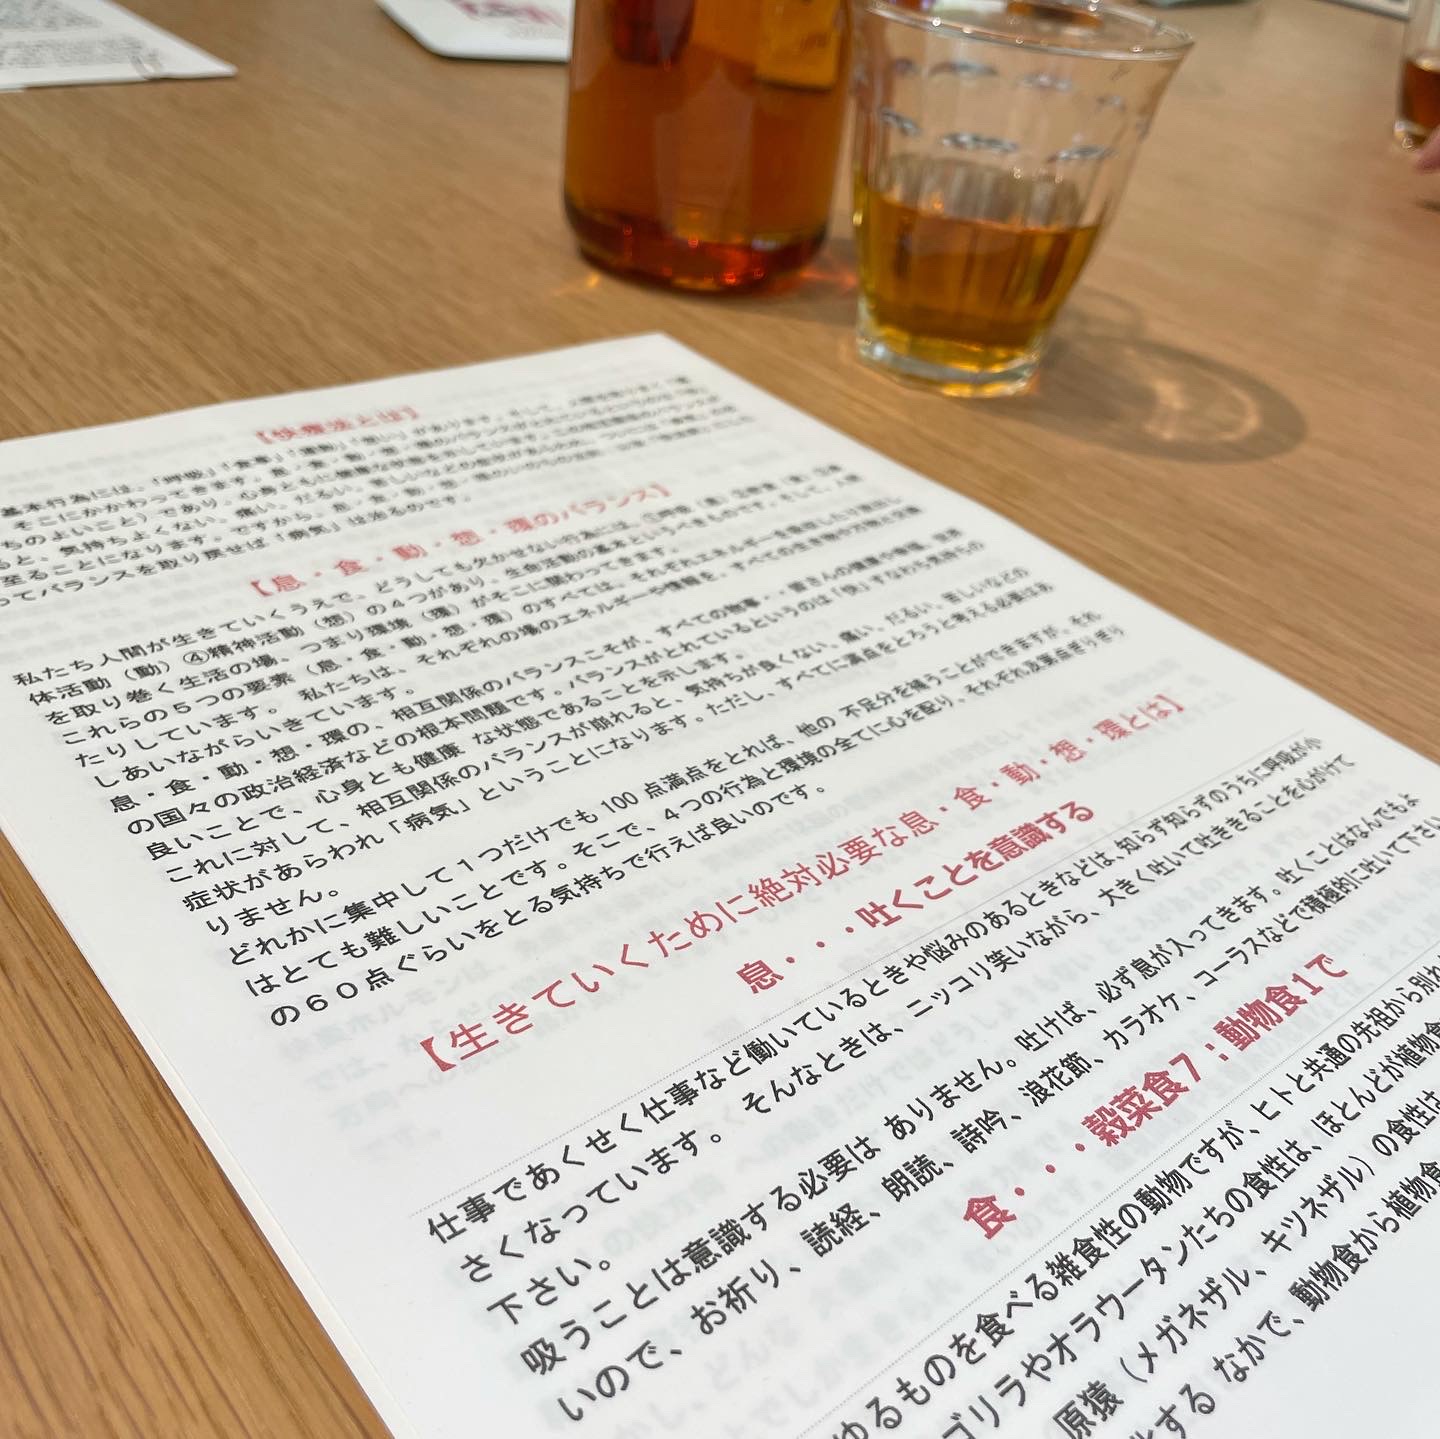 【快療法とは】
基本行為には、「呼吸」「食事」「運動」「想い」があります。そして、
そこにかかわってきます。息・食・動・想・環のバランスがとれているというのは「快」
ちのよいこと）であり、心身ともに健康な状態を示しています。この相互関係のバランスが
ると、気持ちよくない、痛い、だるい、苦しいなどの症状があらわれ、ついには「病気」
至ることになります。ですから、息・食・動・想・環の
ってバランスを取り戻せば「病気」は治るのです。
【息・食・動・想・環のバランス】
私たち人間が生きていくうえで、どうしても欠かせない行為には、①呼吸（息）②飲食（食）③身
体活動（動）④精神活動（想）の４つがあり、生命活動の基本というべきものです。そして、人間
を取り巻く生活の場、つまり環境（環）がそこに関わってきます。
これらの５つの要素（息・食・動・想・環）のすべては、それぞれエネルギーを吸収したり放出し
たりしています。 私たちは、それぞれの場のエネルギーや情報を、すべての生き物や万物と交換
しあいながらいきています。
息・食・動・想・環の、相互関係のバランスこそが、すべての物事・・皆さんの健康や幸福、世界
の国々の政治経済などの根本問題です。バランスがとれているというのは「快」すなわち気持ちの
良いことで、心身とも健康 な状態であることを示します。
これに対して、相互関係のバランスが崩れると、気持ちが良くない、痛い、だるい、苦しいなどの
症状があらわれ「病気」ということになります。ただし、すべてに満点をとろうと考える必要はあ
りません。
どれかに集中して１つだけでも 100 点満点をとれば、他の 不足分を補うことができますが、それ
はとても難しいことです。そこで、４つの行為と環境の全てに心を配り、それぞれ及第点ぎりぎり
の６０点ぐらいをとる気持ちで行えば良いのです。
【生きていくために絶対必要な息・食・動・想・環とは】
息・・・吐くことを意識する
仕事であくせく仕事など働いているときや悩みのあるときなどは、知らず知らずのうちに呼吸が小
さくなっています。そんなときは、ニッコリ笑いながら、大きく吐いて吐ききることを心がけて
下さい。
吸うことは意識する必要は ありません。吐けば、必ず息が入ってきます。吐くことはなんでもよ
いので、お祈り、読経、朗読、詩吟、浪花節、カラオケ、コーラスなどで積極的に吐いて下さい
食・・・穀菜食７；動物食１で
ゆるものを食べる雑食性の動物ですが、ヒトと共通の先祖から別れ
ゴリラやオラウータンたちの食性は、ほとんどが植物食
原猿（メガネザル、キツネザル）の食性は
する なかで、動物食から植物食